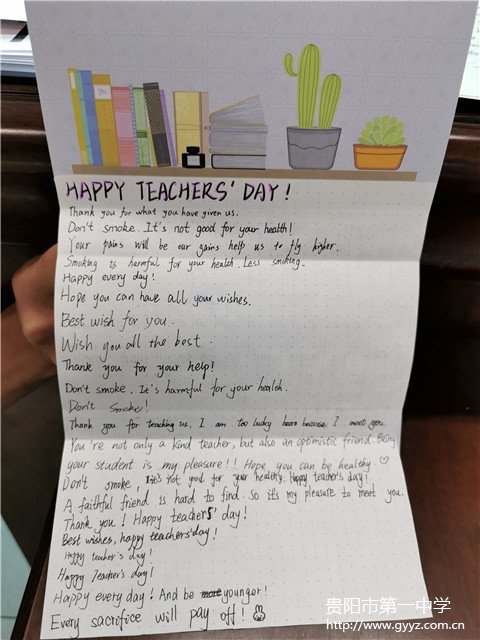 HAPPY TEACHERS' DAY!
Thank you for what you have given us.
Don't smoke. It's not good for your health!
Your pains will be our gains help us to fly higher.
Smoking is harmful for your health. Less smoking.
Happy every day!
Hope you can have all your wishes.
Best wish for you.
Wish you all the best.
Thank you for your help!
Don't smoke. It's harmful for your health.
Don't smoke!
Thank you for teaching us. I am too lucky because I meet you.
You're not only a kind teacher, but also an optimistic friend. Being
your student is my pleasure!! Hope you can be healthy ♡
Don't smoke, It's not good for your healthy. Happy teacher's day!
A faithful friend is hard to find. So it's my pleasure to meet you.
Thank you! Happy teachers' day!
Best wishes, happy teachers'day!
Happy teacher's day!
Happy Teacher's day!
Happy every day! And be younger!
Every sacrifice will pay off!
贵阳市第一中学
www.gyyz.com.cn